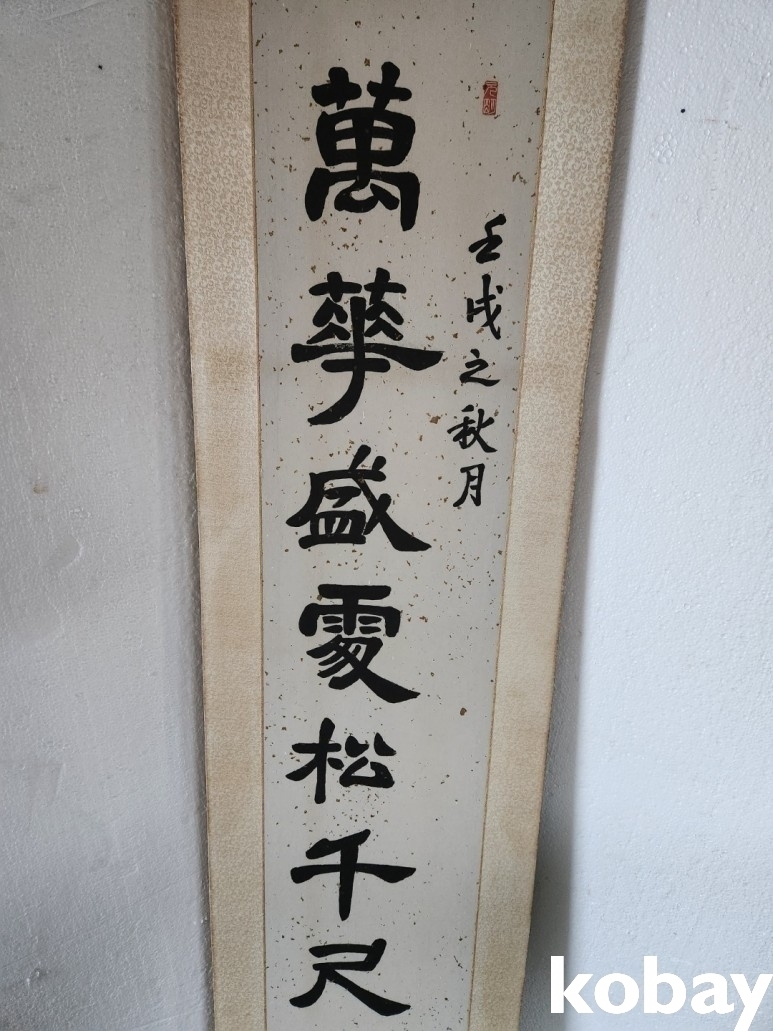 壬戌之秋月
萬華盛處松千尺
kobay